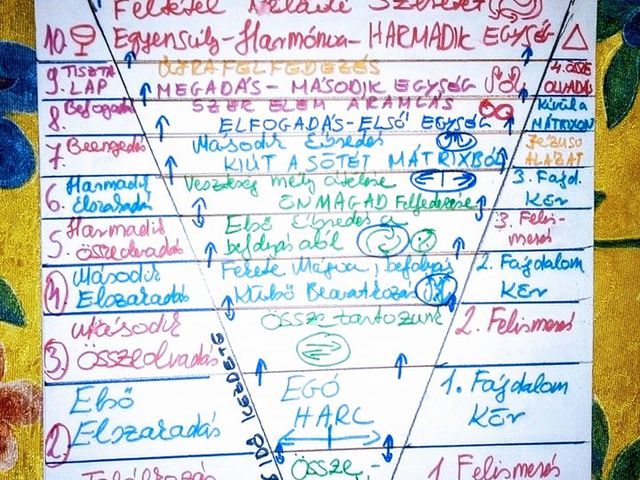 Feltétel Nélküli Szeretet
10. Egyensúly-Harmónia-HARMADIK EGYSÉG
ÚJRAFELFEDEZÉS
9. TISZTA LAP
MEGADÁS-MÁSODIK EGYSÉG
4. ÖSSZE OLVADÁS
SZERELEM ÁRAMLÁS
8. Befogadás
ELFOGADÁS-ELSŐ EGYSÉG
Kívül a MÁTRIXON
7. Beengedés
Második Ébredés
KIÚT A SÖTÉT MÁTRIXBÓL
JÉZUSI ALÁZAT
6. Harmadik Elszakadás
Veszteség mély átélése
ÖNMAGAD Felfedezése
3. Fájd. Kör
5. Harmadik Összeolvadás
Első Ébredés a befolyás alól
3. Felismerés
4. Második Elszakadás
Fekete Mágia, befolyás
Külső Beavatkozás
2. Fájdalom Kör
3. Második Összeolvadás
Összetartozunk
2. Felismerés
2. Első Elszakadás
EGÓ HARC
1. Fájdalom Kör
IDŐ KEZDETE
Találkozás
Össze
1. Felismerés